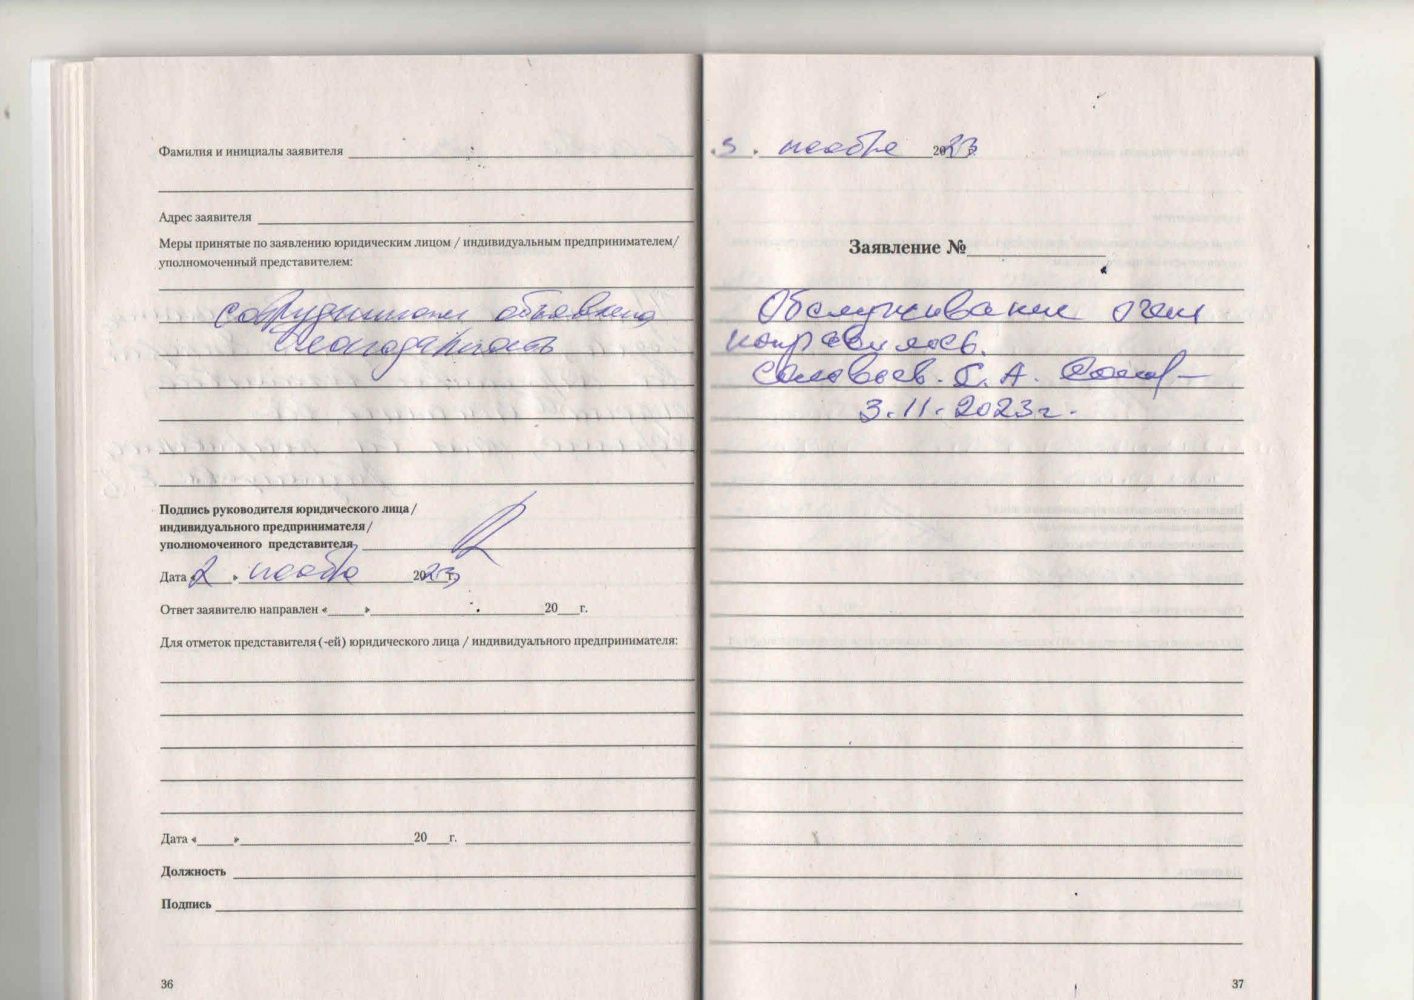 Фамилия и инициалы заявителя
Адрес заявителя
Меры принятые по заявлению юридическим лицом / индивидуальным предпринимателем/
уполномоченный представителем:
сотрудникам объявлена
благодарность
Подпись руководителя юридического лица /
индивидуального предпринимателя /
уполномоченного представителя
Дата «2» ноября 2023 г.
Ответ заявителю направлен «____»____________20___г.
Для отметок представителя (-ей) юридического лица / индивидуального предпринимателя:
Дата «____»____________20___г.
Должность
Подпись
36
«3» ноября 2023
Заявление №
Обслуживание очень
понравилось.
Соловьев. С. А.
3.11.2023г.
37